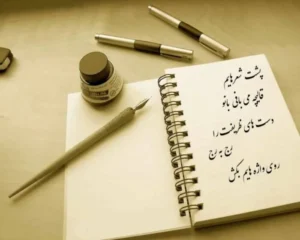 پشت شعرهایم
قالیچه می بافی بانو
دست های ظریفت را
رج به رج
روی واژه هایم بکش